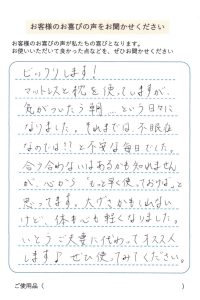 お客様のお喜びの声をお聞かせください
お客様のお喜びの声が私たちの喜びとなります。
お使いいただいて良かった点などを、ぜひお聞かせください
ビックリします!
マットレスと枕を使ってますが、
気がついたら朝...という日々に
なりました。それまでは、不眠症
なのでは!!と不安な毎日でした。
合う合わないはあるかも知れません
が、心から"もっと早く使っておけば"と
思ってます。大げさかもしれない
けど、体も心も軽くなりました。
いとうご夫妻に代わってオススメ
します♪ ぜひ使ってみてください。
ご使用品( )